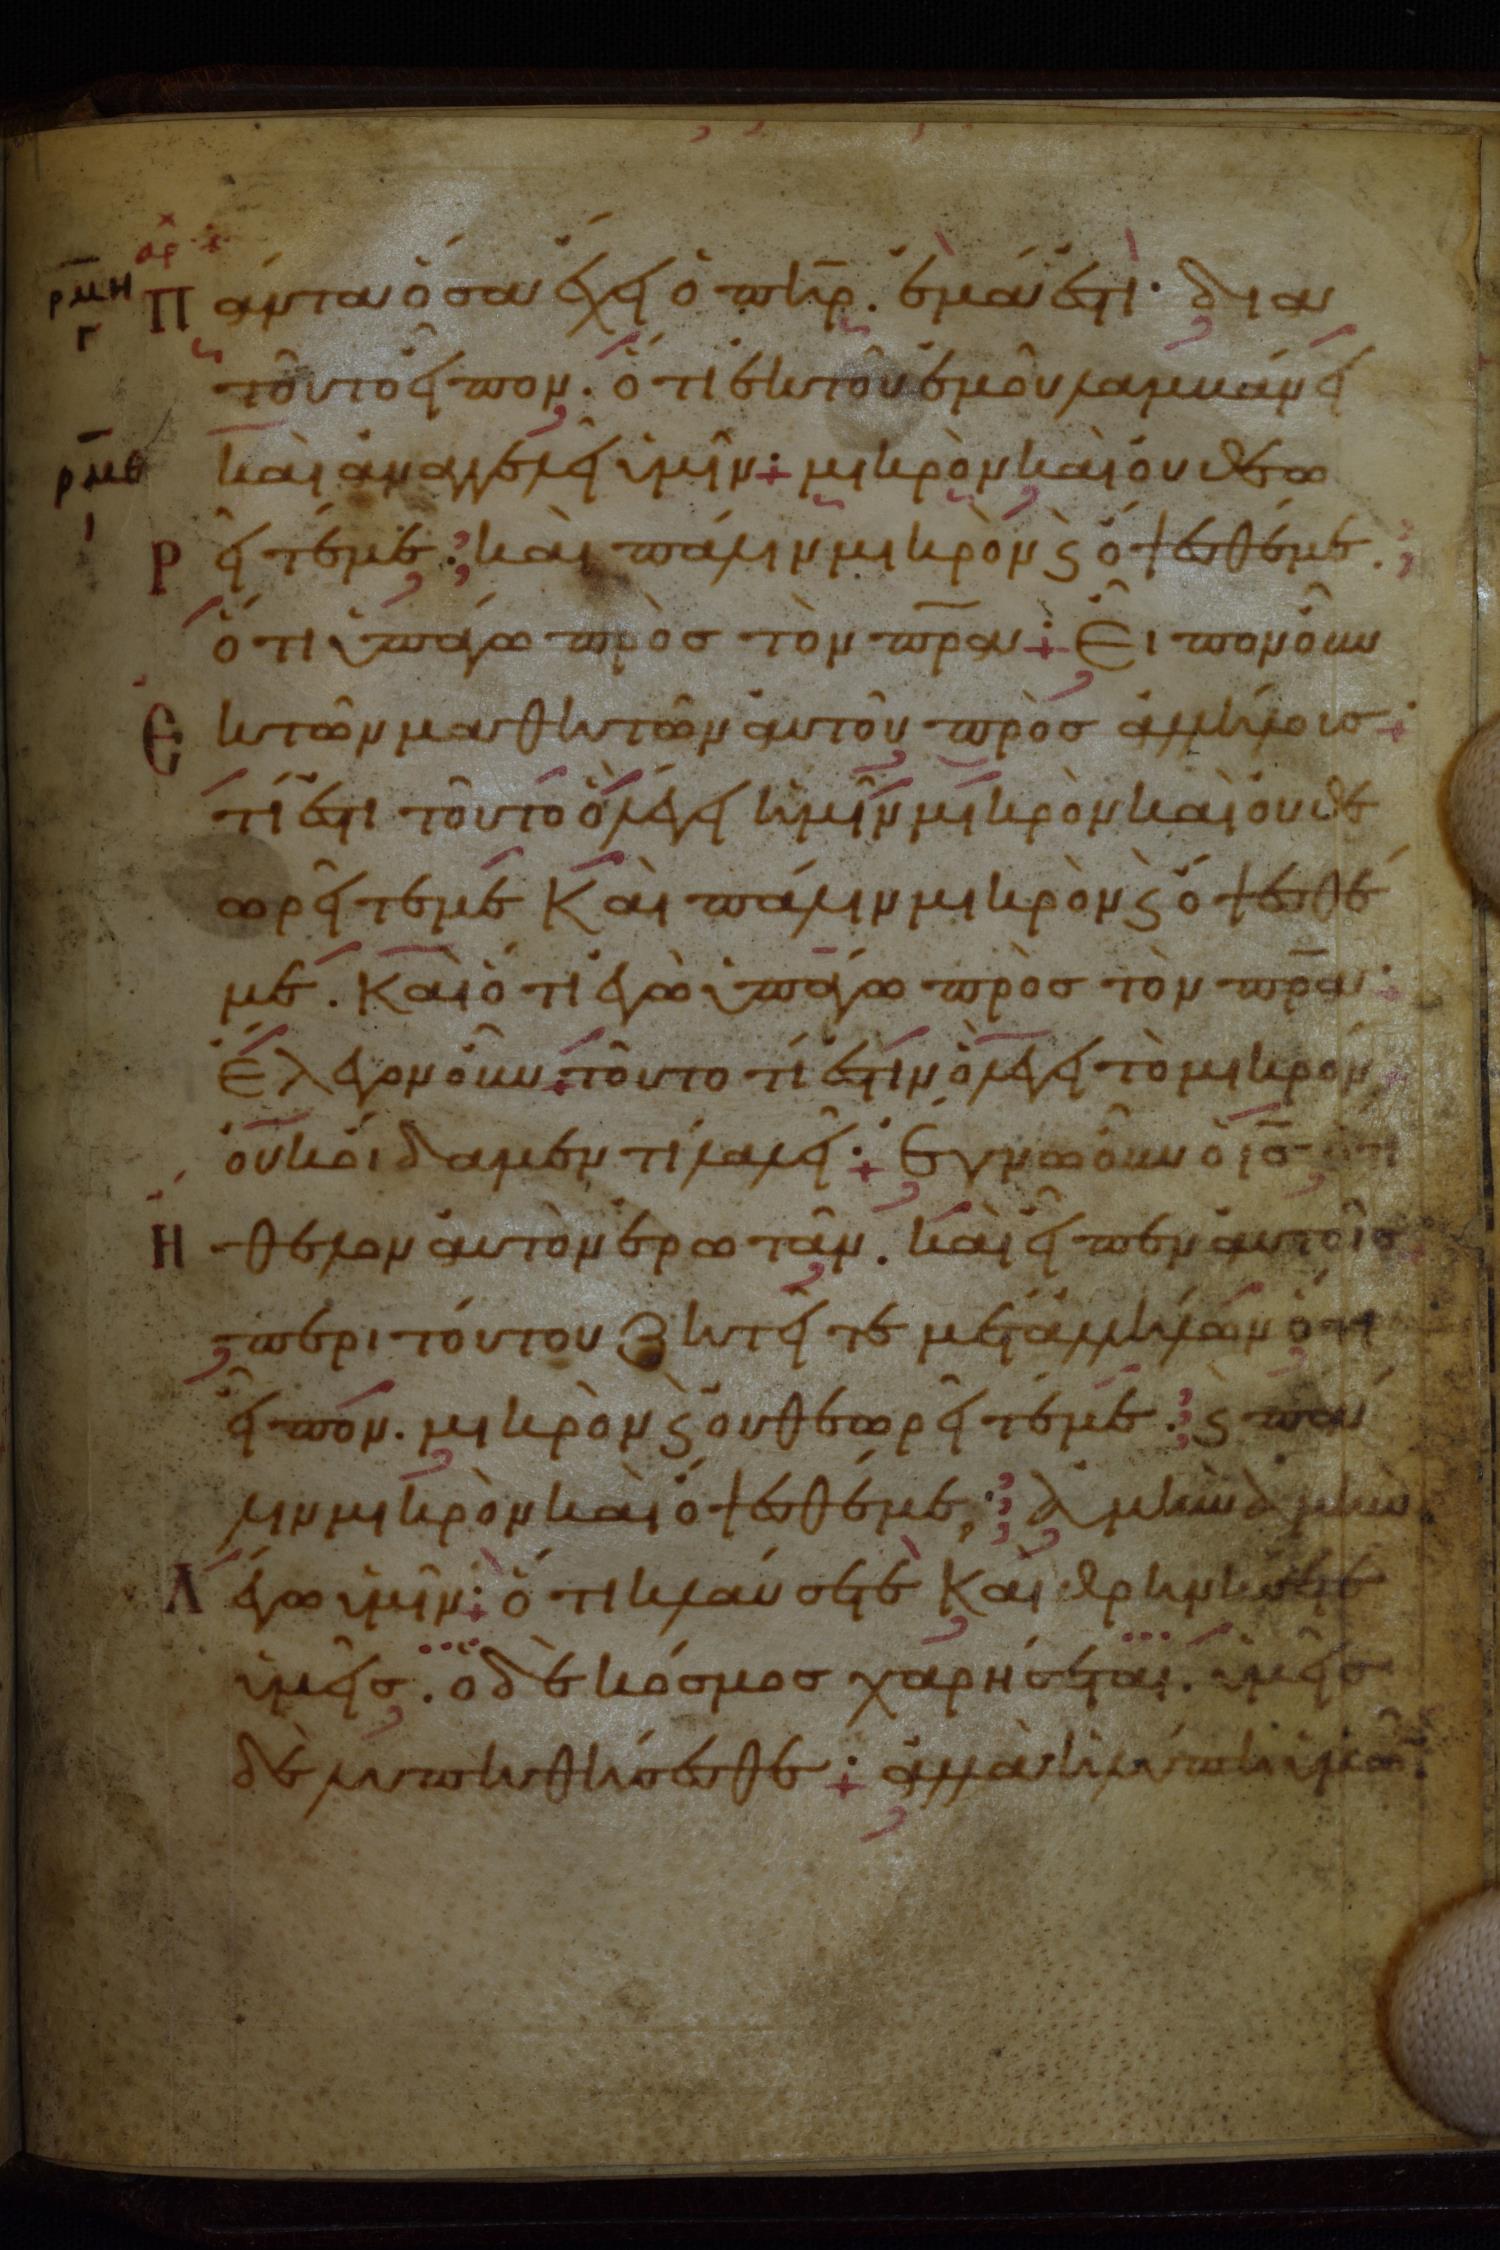 αρχ
ρμη Πάντα ὅσα ἔχει ὁ πηρ. ἐμά ἐστι· δια
γ τοῦτο εἶπον. ὅτι ἐκ τοῦ ἐμοῦ λαμβάνει
ρμθ καὶ ἀναγγελεῖ ὑμῖν· μικρὸν καὶ οὐ θεω
ι Ρεῖτέ με. καὶ πάλιν μικρὸν ϛ ὄψεσθέ με.
ὅτι ὑπάγω πρὸς τὸν πρα· Εἶπον οὖν
Εκ τῶν μαθητῶν αὐτοῦ πρὸς ἀλλήλοις·
τί ἐστι τοῦτο ὃ λέγει ἡμῖν μικρὸν καὶ οὐ θε
ωρεῖτέ με Καὶ πάλιν μικρὸν ϛ ὄψεσθέ
με. Καὶ ὅτι ἐγὼ ὑπάγω πρὸς τὸν πρα·
Ἔλεγον οὖν· τοῦτο τί ἐστιν ὃ λέγει τὸ μικρόν
οὐκ οἴδαμεν τί λαλεῖ· Ἔγνω οὖν ὁ ις ὅτι
Ηθελον αὐτὸν ἐρωτᾶν. καὶ εἶπεν αὐτοῖς
περι τούτου ζητεῖτε μετ ἀλλήλων ὅτι
εἶπον. μικρὸν ϛ οὐ θεωρεῖτέ με. ϛ πά
λιν μικρὸν καὶ ὄψεσθέ με· ἀμὴν ἀμὴν
Λέγω ὑμῖν· ὅτι κλαύσετε Καὶ θρηνήσετε
ὑμεῖς. ὁ δὲ κόσμος χαρήσεται. ὑμεῖς
δὲ λυπηθήσεσθε· ἀλλὰ ἡ λύπη ὑμῶν